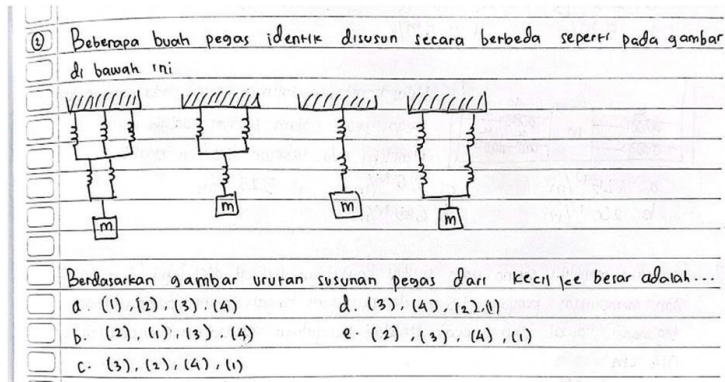 ② Beberapa buah pegas identik disusun secara berbeda seperti pada gambar
di bawah ini
m
m
m
m
Berdasarkan gambar urutan susunan pegas dari kecil ke besar adalah...
a. (1), (2), (3), (4)
d. (3), (4), (2), (1)
b. (2), (1), (3), (4)
e. (2), (3), (4), (1)
c. (3), (2), (4), (1)